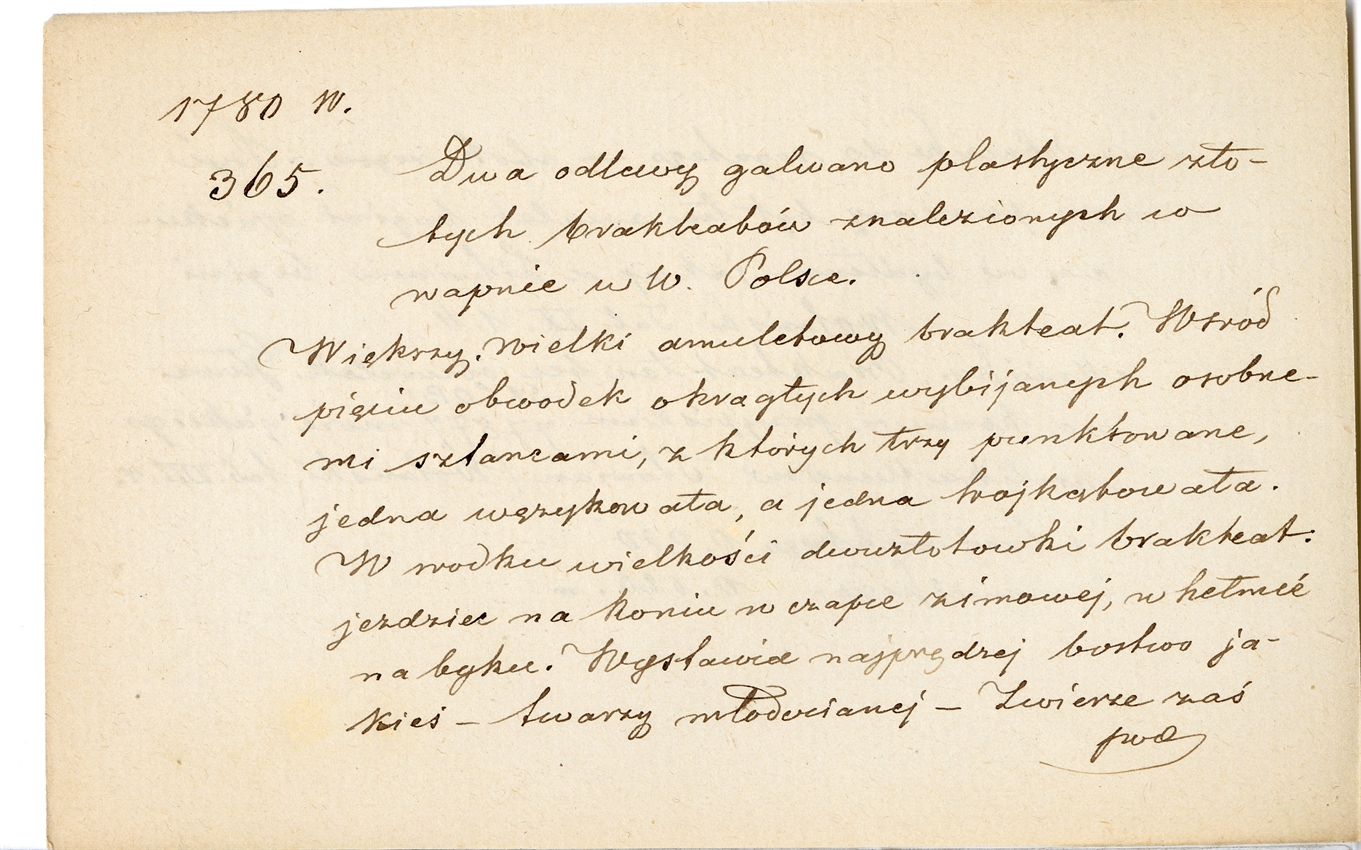 1780 W.
365. Dwa odlewy galwano plastyczne zło-
tych brakteatów znalezionych w
wapnie w W. Polsce.
Większy. Wielki amuletowy brakteat. Wśród
pięciu obwodek okrągłych wybijanych osobne-
mi sztancami, z których trzy punktowane,
jedna wężykowata, a jedna trojkątowata.
W srodku wielkości dwuzłotowki brakteat.
jezdziec na koniu w czapce zimowej, w hełmie
na byku. Wystawia najprędzej bostwo ja-
kieś – twarzy młodocianej – Zwierze zaś
pod